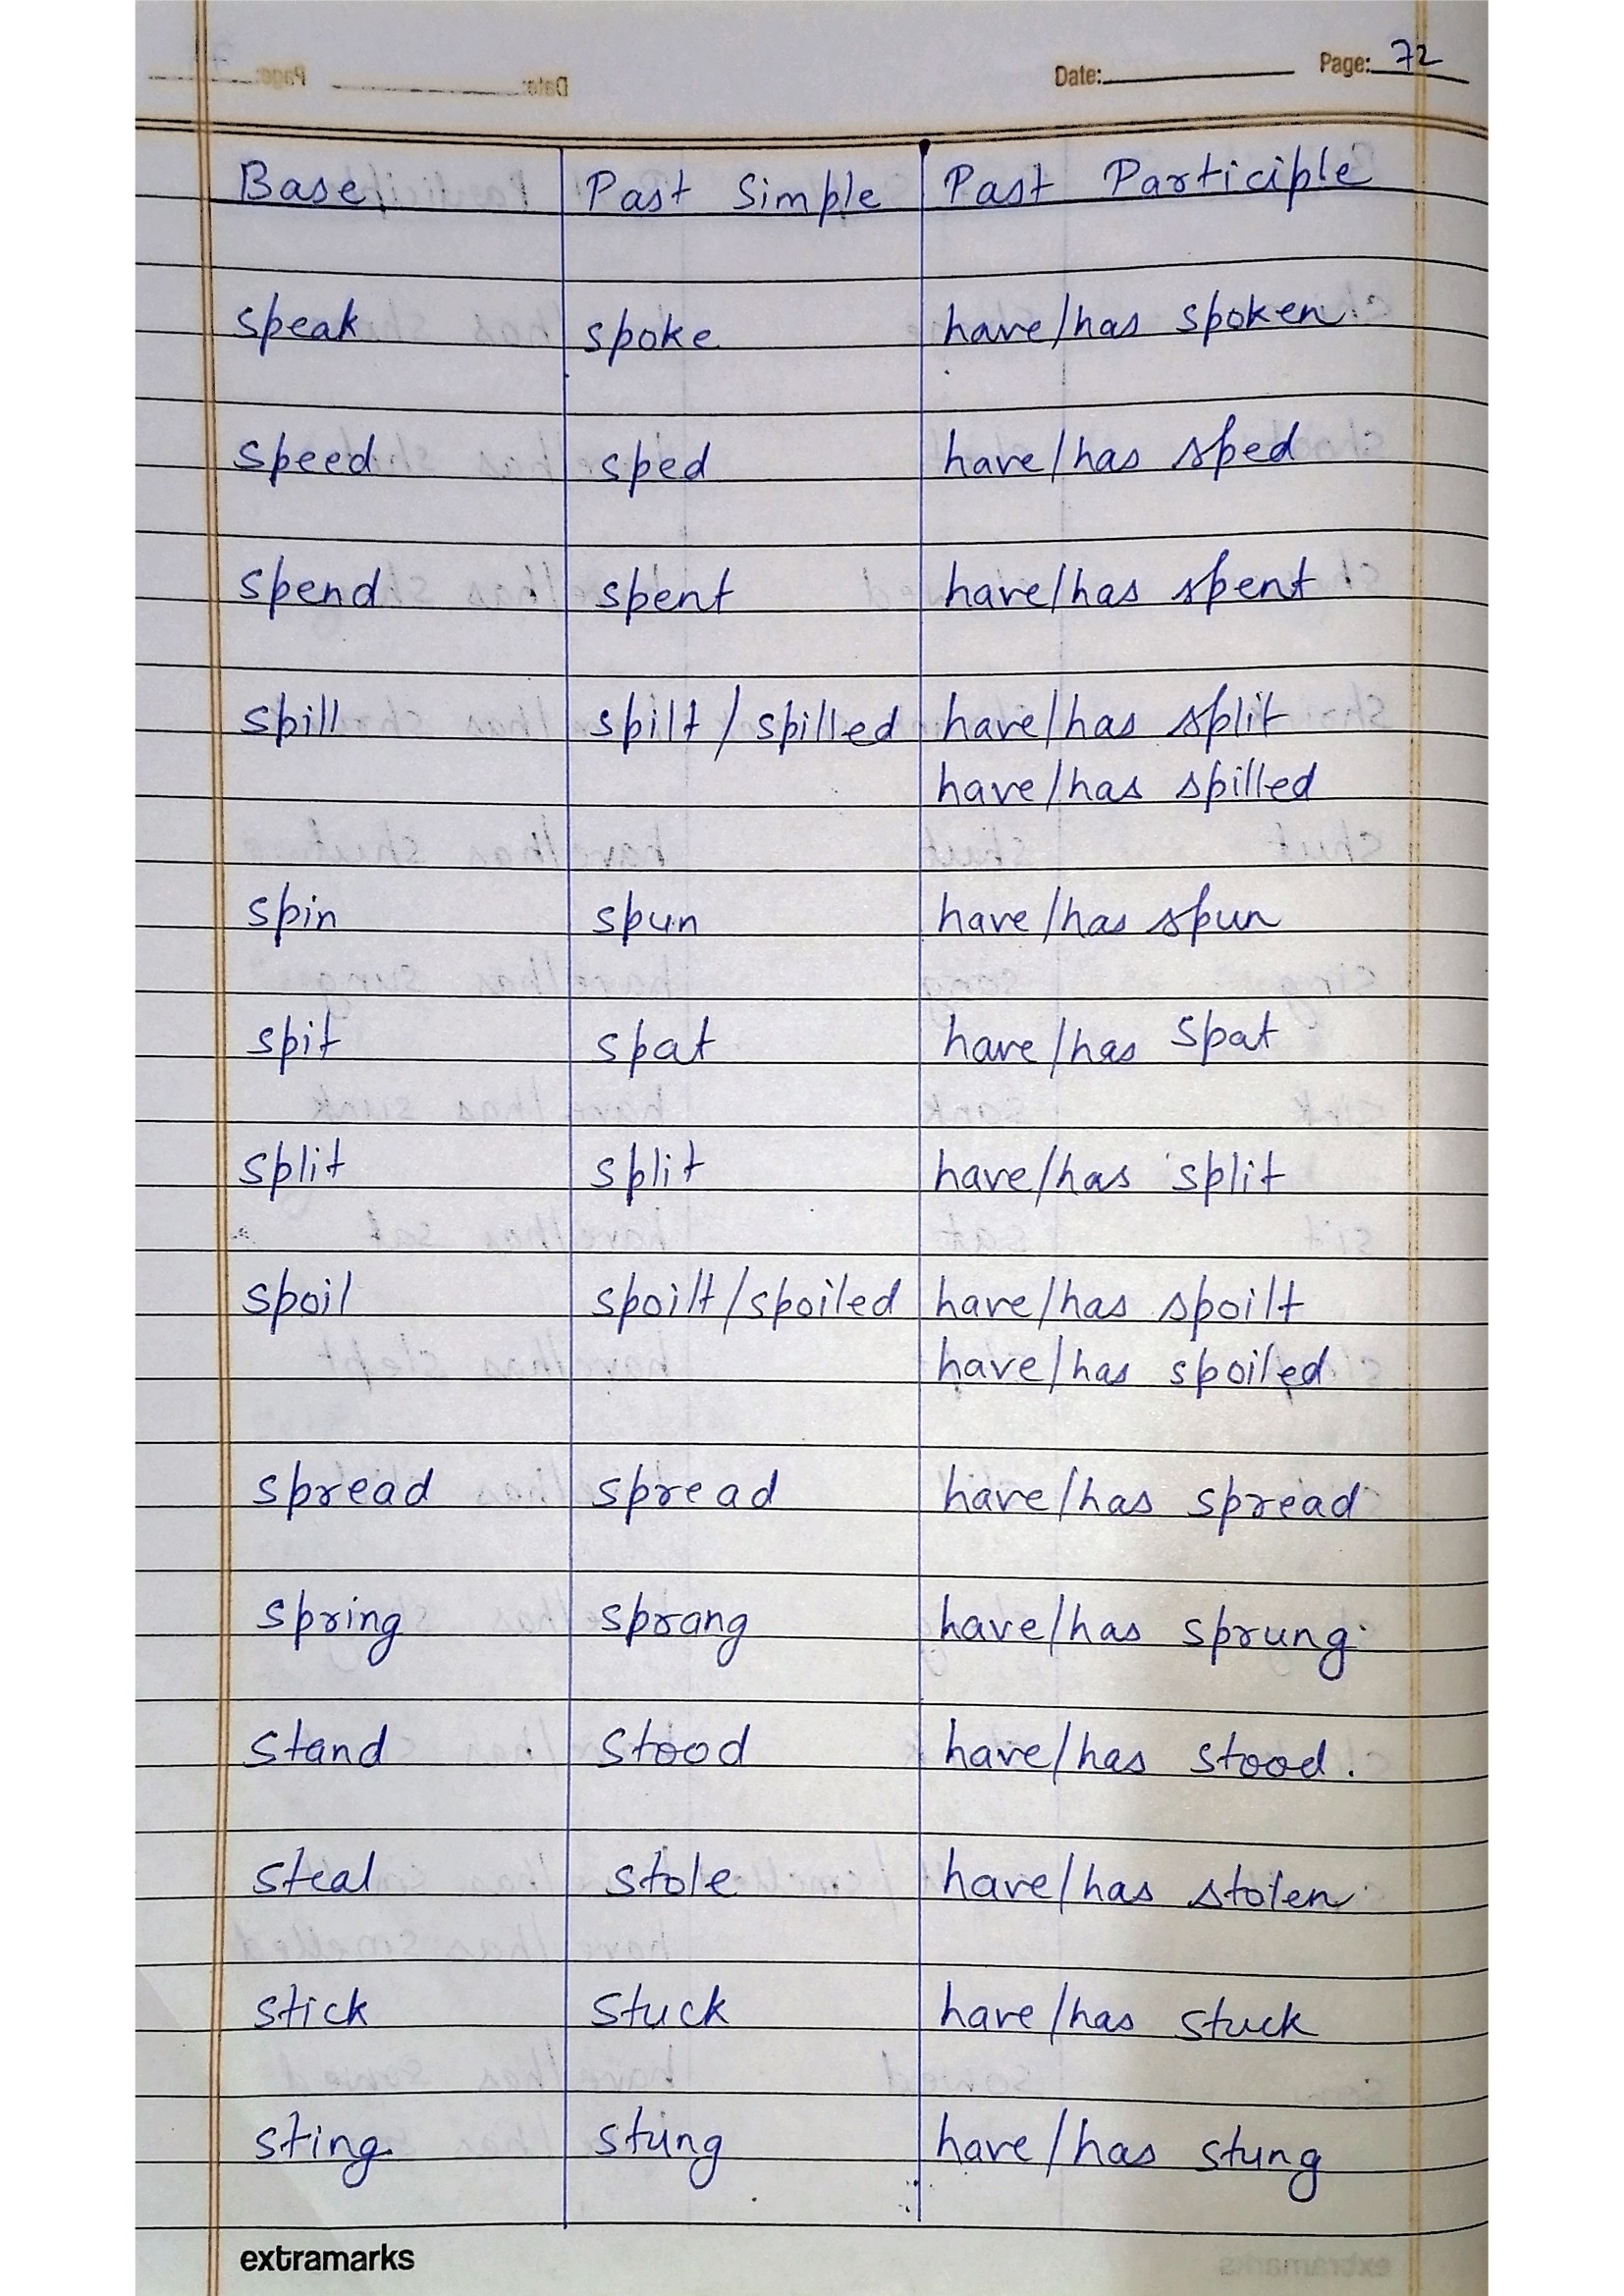 Date: Page: 72
Base Past Simple Past Participle
speak spoke have/has spoken
speed sped have/has sped
spend spent have/has spent
spill spilt / spilled have/has split
have/has spilled
spin spun have/has spun
spit spat have/has spat
split split have/has split
spoil spoilt/spoiled have/has spoilt
have/has spoiled
spread spread have/has spread
spring sprang have/has sprung
stand stood have/has stood.
steal stole have/has stolen
stick stuck have/has stuck
sting stung have/has stung
extramarks